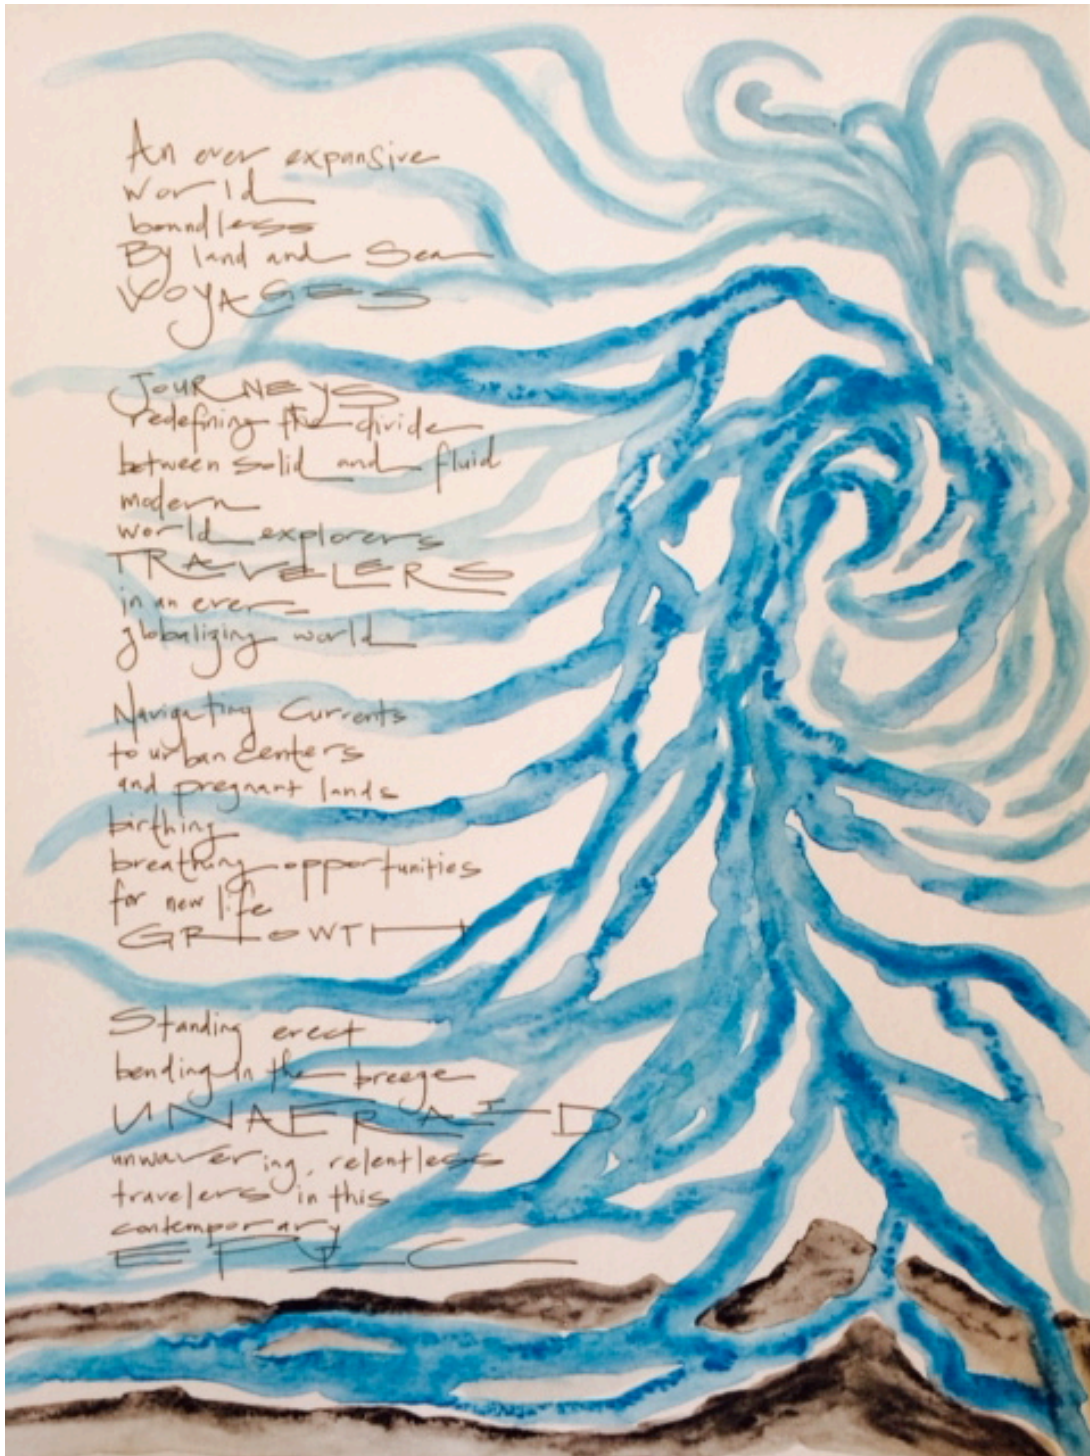 An ever expansive
world
boundless
By land and Sea
VOYAGES
JOURNEYS
redefining the divide
between solid and fluid
modern
world explorers
TRAVELERS
in an ever
globalizing world
Navigating Currents
to urban centers
and pregnant lands
birthing
breathing opportunities
for new life
GROWTH
Standing erect
bending in the breeze
UNAFRAID
unwavering, relentless
travelers in this
contemporary
EPIC